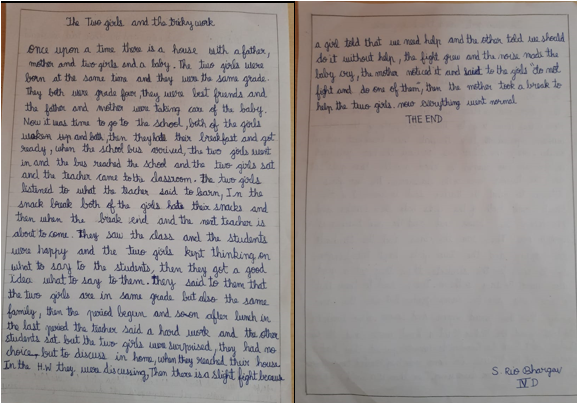 The Two girls and the tricky work
once upon a time there is a house with a father,
mother and two girls and a baby. The two girls were
born at the same time and they were the same grade.
They both were grade four, they were best friends and
the father and mother were taking care of the baby.
Now it was time to go to the school, both of the girls
woken up and bath, then they hate their breakfast and got
ready, when the school bus arrived, the two girls went
in and the bus reached the school and the two girls sat
and the teacher came to the classroom. The two girls
listened to what the teacher said to learn, In the
snack break both of the girls hate their snacks and
then when the break end and the next teacher is
about to come. They saw the class and the students
were happy and the two girls kept thinking on
what to say to the students, then they got a good
idea what to say to them. they said to them that
the two girls are in same grade but also the same
family, then the period begun and soon after lunch in
the last period the teacher said a hard work and the other
students sat but the two girls were surprised, they had no
choice, but to discuss in home, when they reached their house
In the H.W they were discussing, Then there is a slight fight because
a girl told that we need help and the other told we should
do it without help, the fight grew and the noise made the
baby cry, the mother noticed it and said to the girls do not
fight and do one of them, then the mother took a break to
help the two girls. now everything went normal
THE END
S. Rio Bhargav
IV D